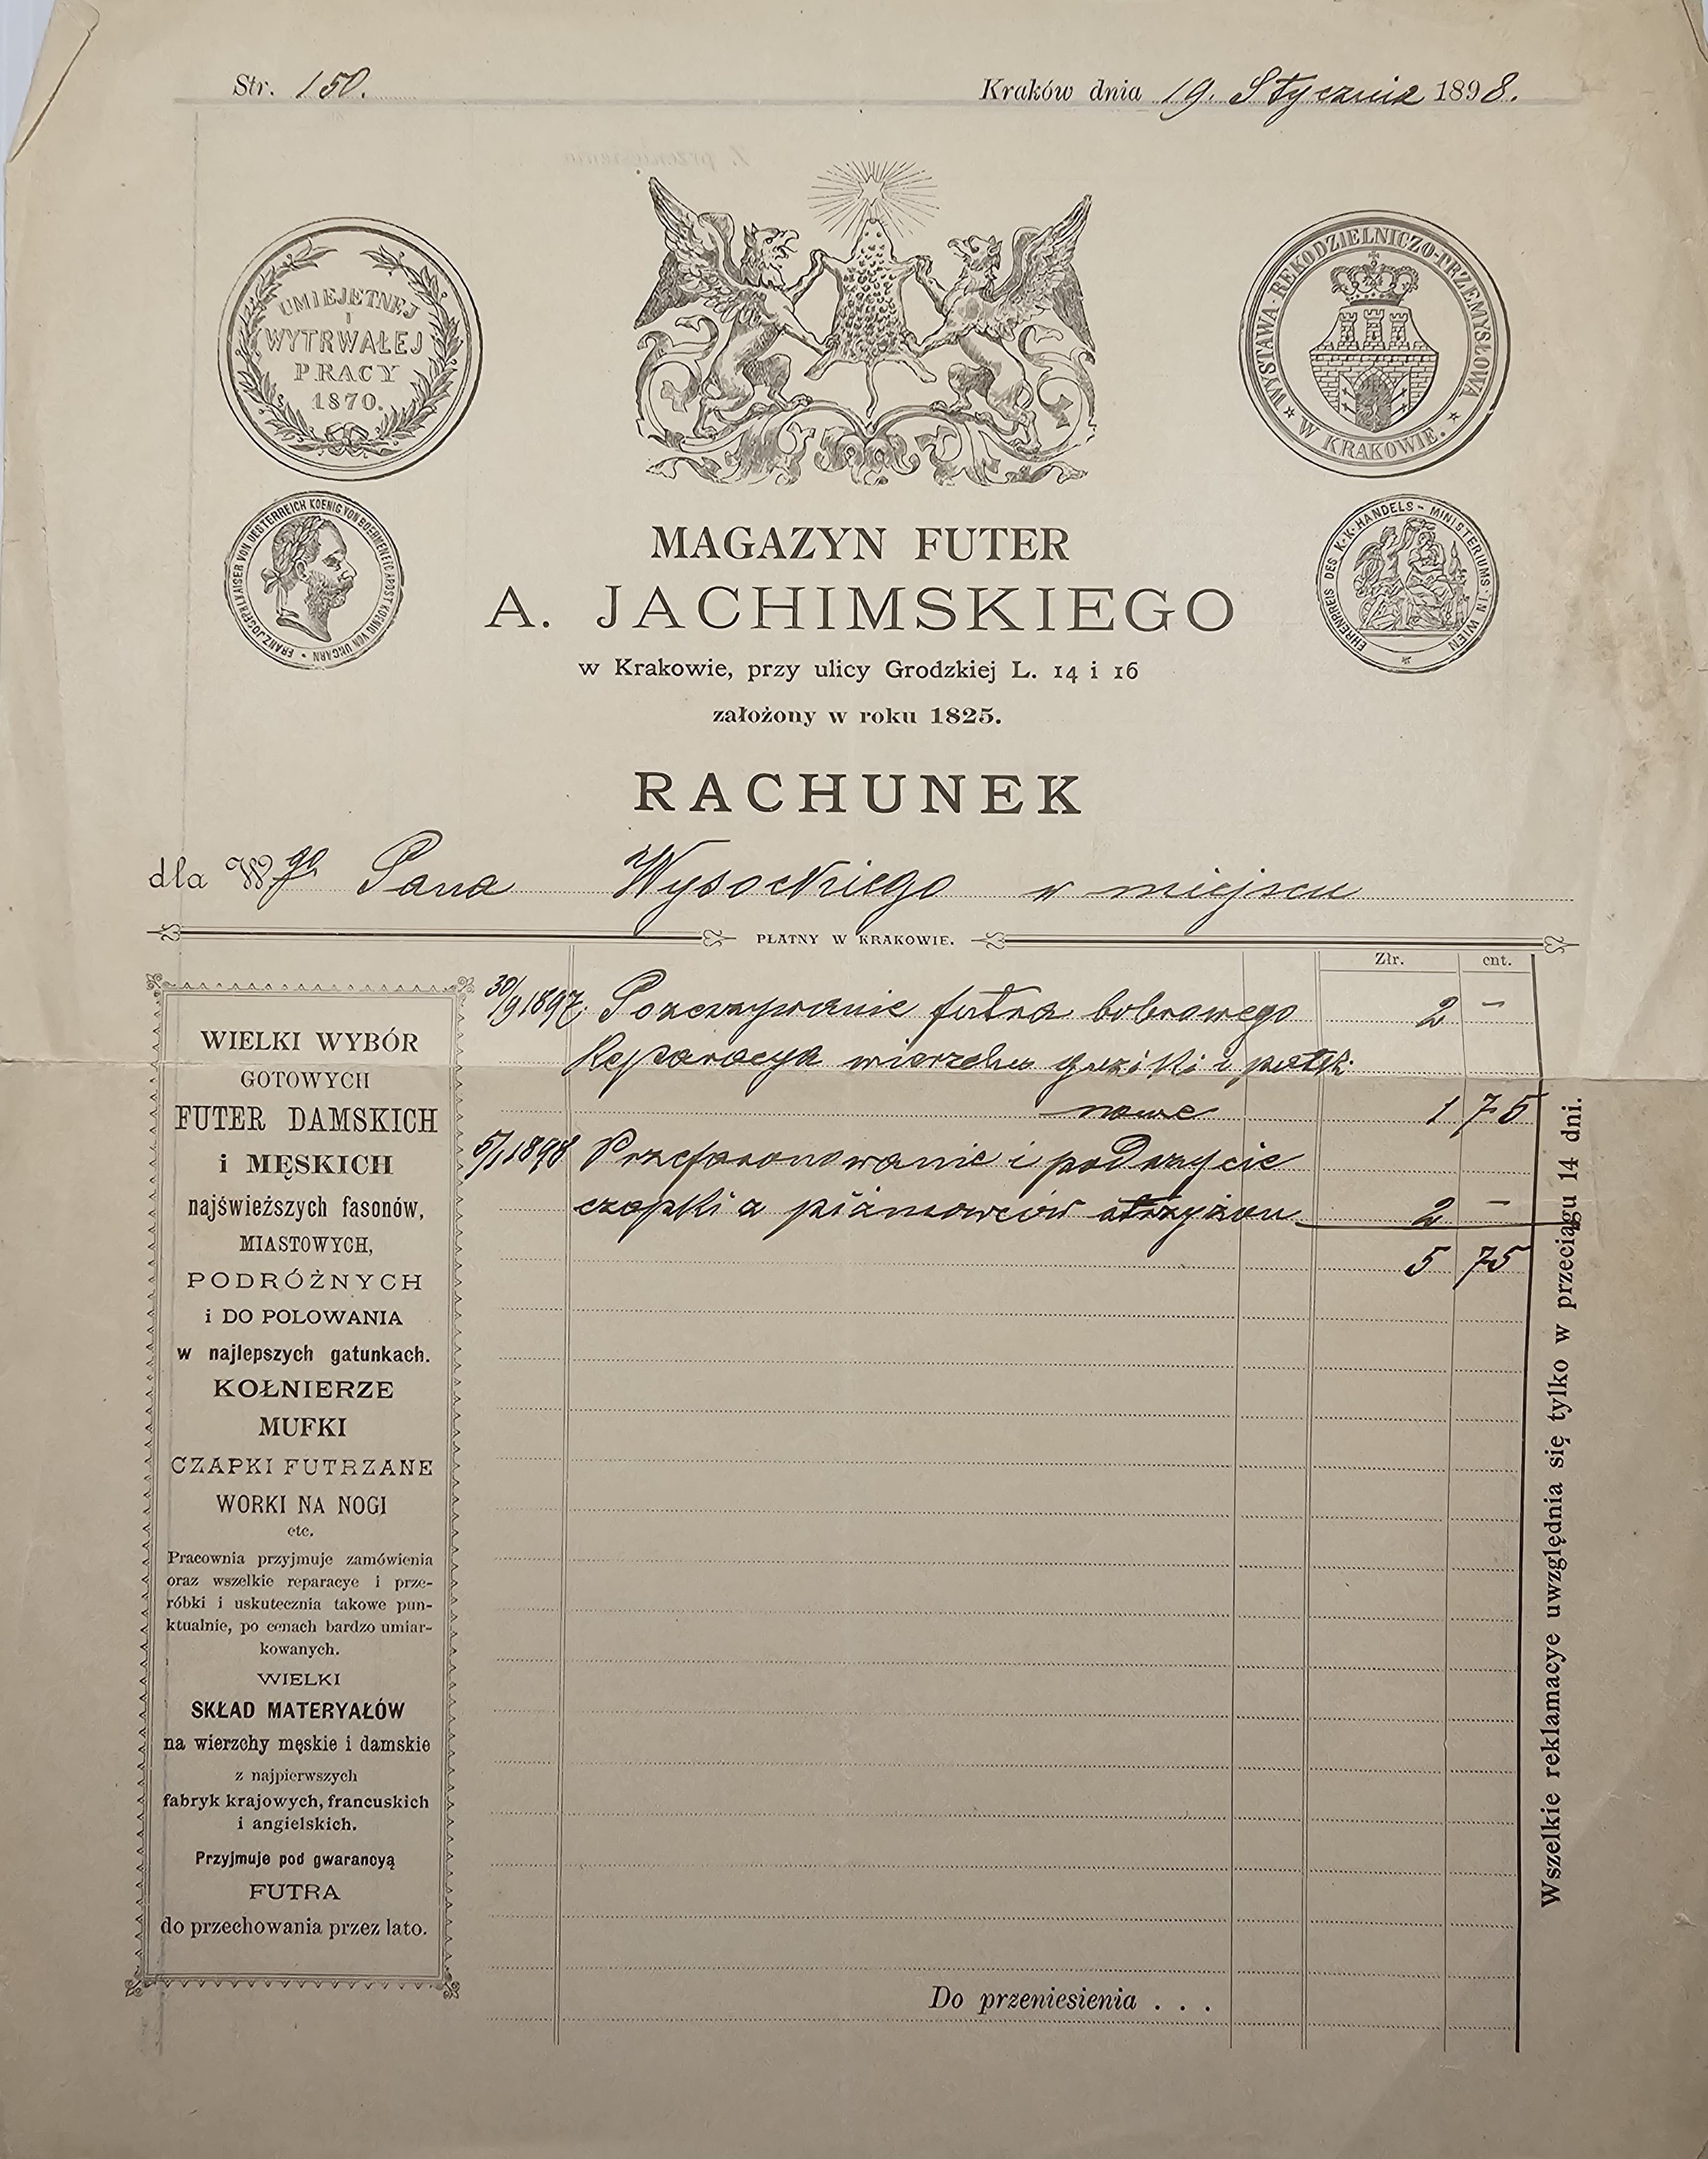 Str. 150.
Kraków dnia 19. Stycznia 1898.
UMIEJĘTNEJ
I
WYTRWAŁEJ
PRACY
1870.
WYSTAWA · RĘKODZIELNICZO-PRZEMYSŁOWA
* W KRAKOWIE. *
FRANZ JOSEPH I. KAISER VON OESTERREICH KOENIG VON BOEHMEN ETC. APOST. KOENIG VON UNGARN
EHRENPREIS DES K·K·HANDELS-MINISTERIUMS IN WIEN
MAGAZYN FUTER
A. JACHIMSKIEGO
w Krakowie, przy ulicy Grodzkiej L. 14 i 16
założony w roku 1825.
RACHUNEK
dla Wgo Pana Wysockiego w miejscu
PŁATNY W KRAKOWIE.
Złr. cnt.
30/9 1897. futra bobrowego 2 —
Reparacya wierzchu guziki i
nowe 1 75
5/1 1898 Przefasonowanie i podszycie
czapki z piżmowców 2 —
5 75
WIELKI WYBÓR
GOTOWYCH
FUTER DAMSKICH
i MĘSKICH
najświeższych fasonów,
MIASTOWYCH,
PODRÓŻNYCH
i DO POLOWANIA
w najlepszych gatunkach.
KOŁNIERZE
MUFKI
CZAPKI FUTRZANE
WORKI NA NOGI
etc.
Pracownia przyjmuje zamówienia
oraz wszelkie reparacye i prze-
róbki i uskutecznia takowe pun-
ktualnie, po cenach bardzo umiar-
kowanych.
WIELKI
SKŁAD MATERYAŁÓW
na wierzchy męskie i damskie
z najpierwszych
fabryk krajowych, francuskich
i angielskich.
Przyjmuje pod gwarancyą
FUTRA
do przechowania przez lato.
Do przeniesienia . . .
Wszelkie reklamacye uwzględnia się tylko w przeciągu 14 dni.